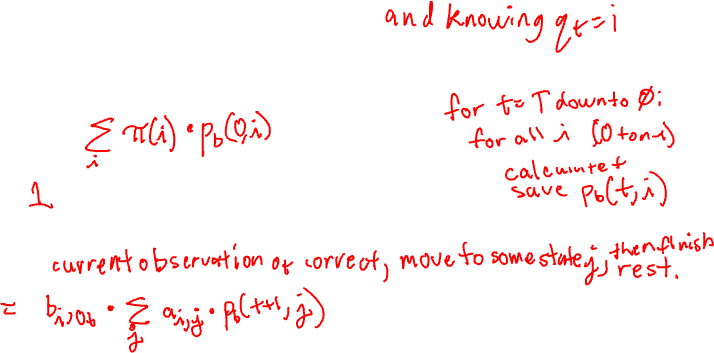 and knowing q_t = i
for t = T down to 0:
for all i (0 to n-1)
calculate +
save p_b(t,i)
∑_i π(i) · p_b(0,i)
1
current observation o_t correct, move to some state j, then finish rest.
= b_{i,o_t} · ∑_j a_{i,j} · p_b(t+1, j)